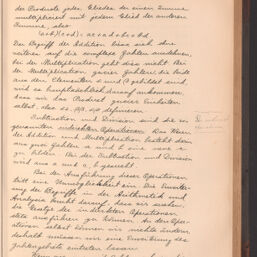 der Producte jedes Gliedes der einen Summe
multipliciert mit jedem Glied der anderen
Summe, also
(a+b)(c+d) = ac+ad+bc+bd
Der Begriff der Addition liess sich ohne
weiteres auf die complexe Zahlen ausdehnen,
bei der Multiplication geht dies nicht. Bei
der Multiplication zweier Zahlen, die beide
aus den Elementen gebildet sind
wird es hauptsächlich darauf ankommen,
dass wir das Product zweier Einheiten
selbst, also definieren.
Subtraction und Division sind die so-
genannten indirecten Operationen. Das Wesen
der Addition und Multiplication besteht darin
aus zwei Zahlen a und b eine neue c
zu bilden. Bei der Subtraction und Division
wird aus a und c, b gesucht.
Bei der Ausführung dieser Operationen
tritt eine Unmöglichkeit ein. Die Erweiter-
ung der Begriffe in der Arithmetik und
Analysis beruht darauf, dass wir suchen,
die Gesetze der indirecten Operationen
stets ausführen zu können. An den Oper-
ationen selbst können wir nichts ändern,
deshalb müssen wir eine Erweiterung des
Zahlengebiets eintreten lassen.